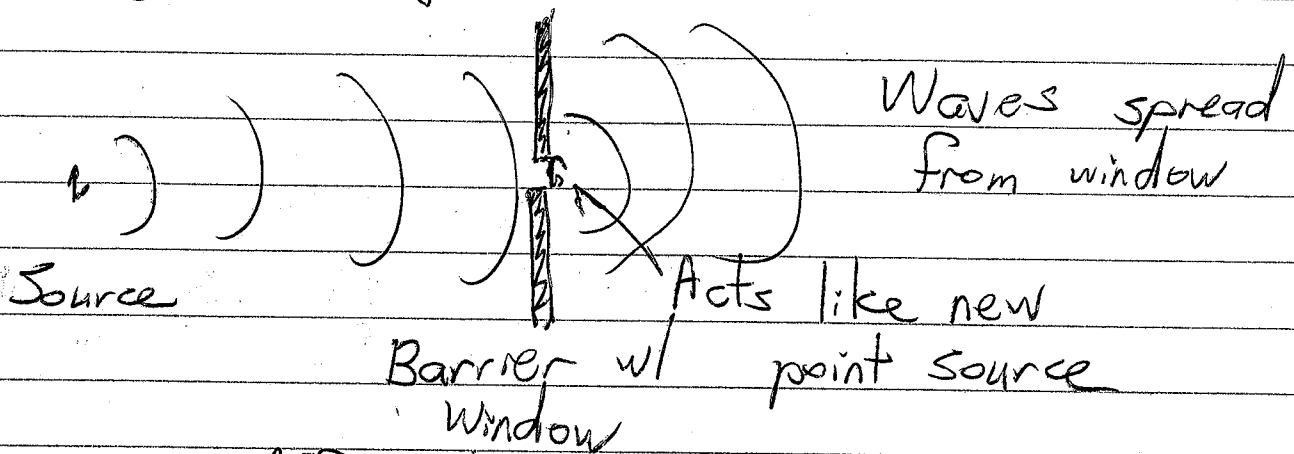 Waves spread
from window
Source
Acts like new
point source
Barrier w/
Window